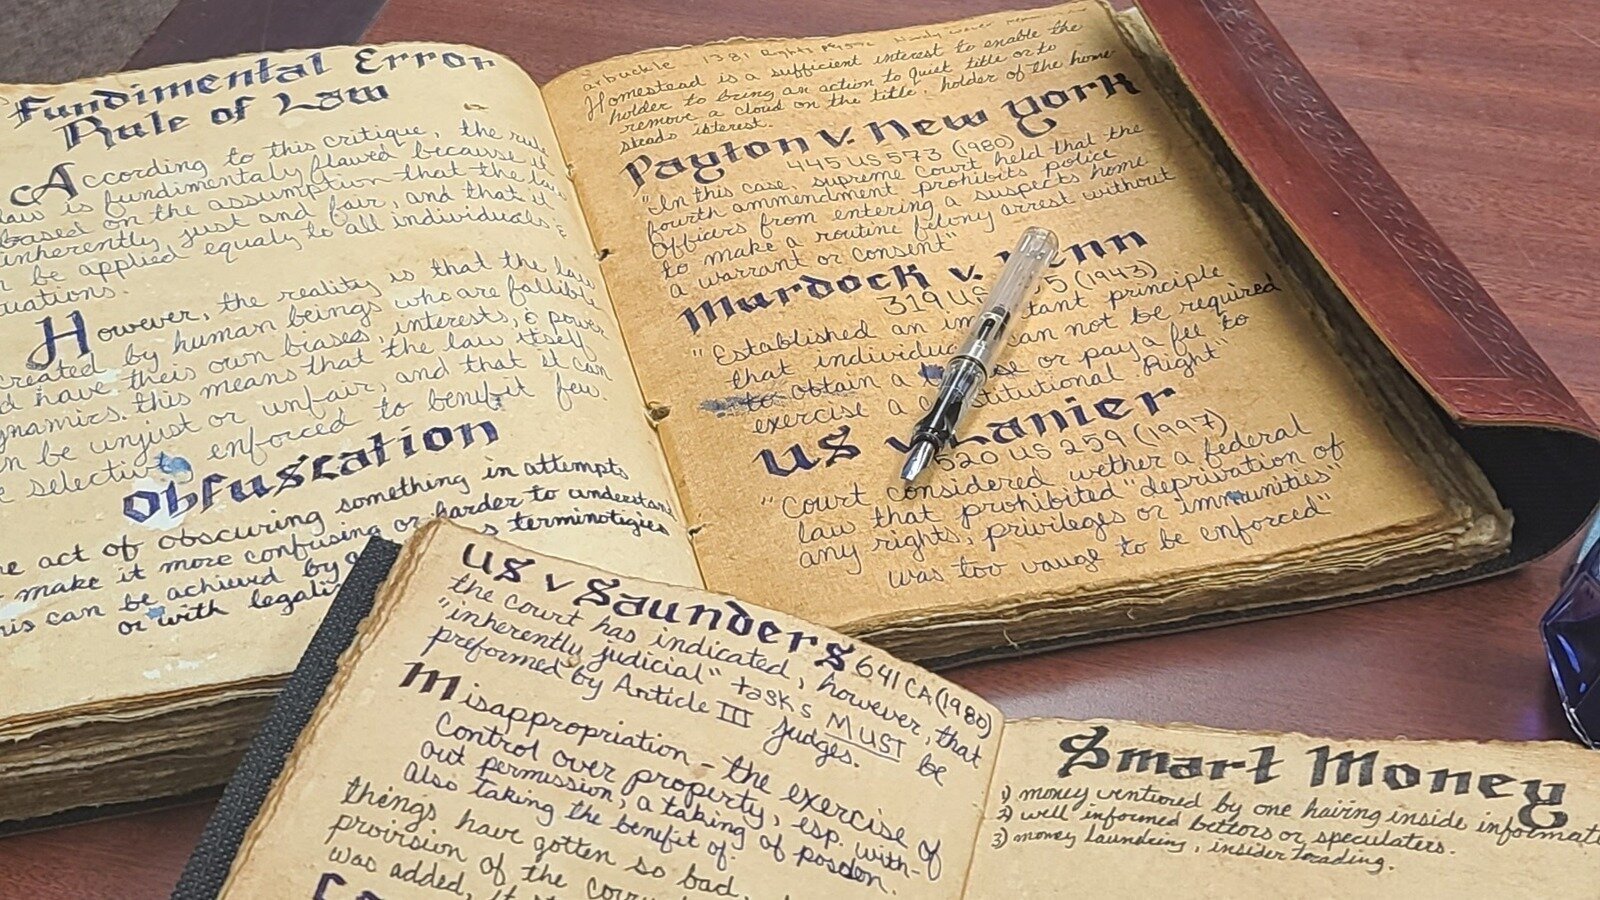 Fundimental Error
Rule of Law
According to this critique, the rule
law is fundimentaly flawed because it
based on the assumption that the law
inherently just and fair, and that it
n be applied equaly to all individuals &
tuations.
However, the reality is that the law
created by human beings who are fallible
d have their own biases, interests, & power
ynamics. this means that the law itself
n be unjust or unfair, and that it can
e selectively enforced to benifit few.
Obfuscation
he act of obscuring something in attempts
make it more confusing or harder to understand
his can be achieved by terminoligies
or with legali
Arbuckle 1381
Homestead is a sufficient interest to enable the
holder to bring an action to quiet title or to
remove a cloud on the title, holder of the home
steads interest.
Payton v. New York
445 US 573 (1980)
"In this case, supreme court held that the
fourth ammendment prohibits police
officers from entering a suspects home
to make a routine felony arrest without
a warrant or consent"
Murdock v. Penn
319 US 5 (1943)
"Established an important principle
that individuals can not be required
to obtain a or pay a fee to
exercise a constitutional Right"
US v Lanier
520 US 259 (1997)
"Court considered wether a federal
law that prohibited "deprivation of
any rights, privileges or immunities"
was too vauge to be enforced"
US v Saunders 641 CA (1980)
the court has indicated, however, that
"inherently judicial" tasks MUST be
preformed by Article III judges.
Misappropriation - the exercise of
Control over property, esp. with-
out permission, a taking of
also taking the benefit of.
things have gotten so bad,
provision of the
was added, it
Smart Money
1) money ventiored by one hairing inside informati
2) well informed bettors or speculaters.
3) money laundring, insider trading.